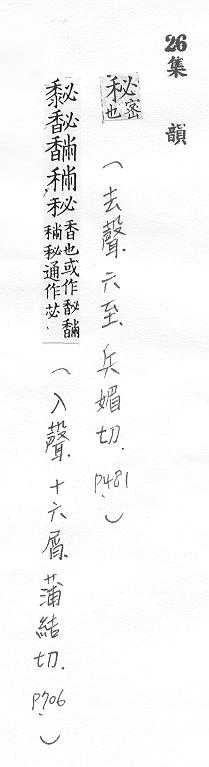 26集 韻
秘 密也(去聲.六至.兵媚切.P481.)
馝 秘 香也或作馝 秘通作苾.(入聲.十六屑.蒲結切.P706.)